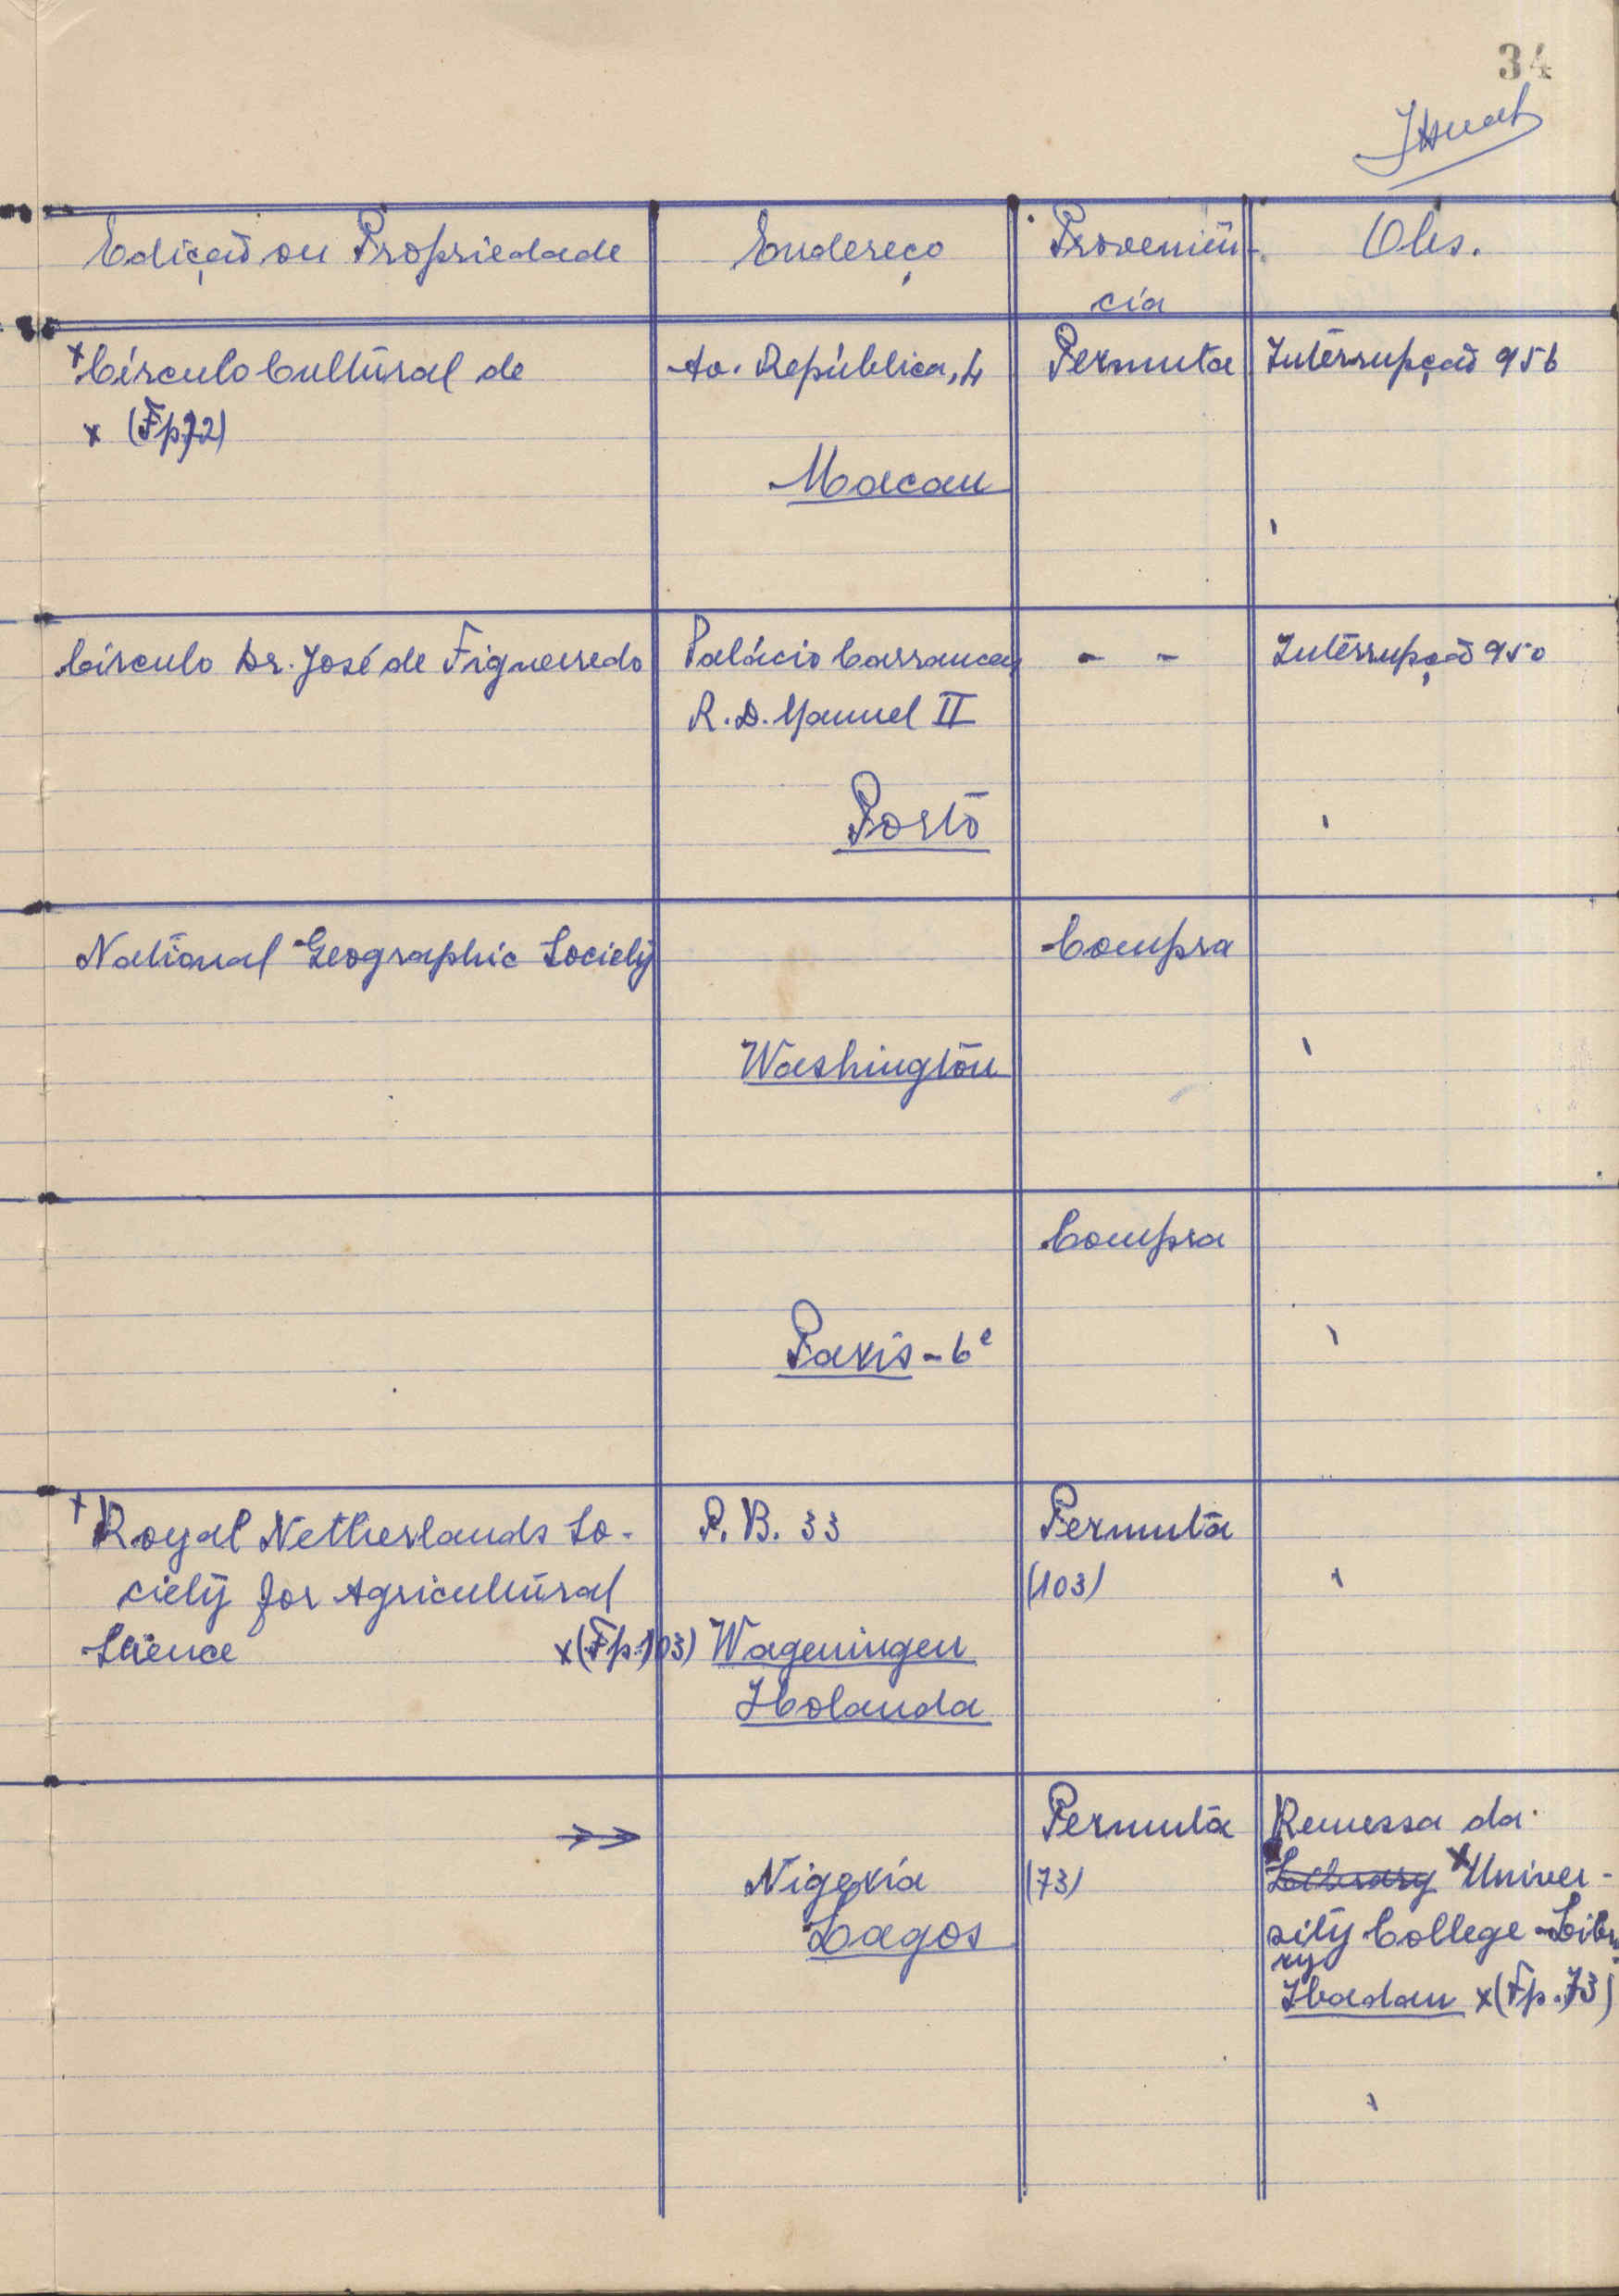 34
Edição ou Propriedade Endereço Proveniên-
cia Obs.
x Círculo Cultural de Av. República, 4 Permuta Interrupção 956
x (Fp 72)
Macau
Círculo Dr. José de Figueiredo Palácio Carrancas, - - Interrupção 950
R. D. Manuel II
Porto
National Geographic Society Compra
Washington
Compra
Paris - 6e
+ Royal Netherlands So- P. B. 33 Permuta
ciety for Agricultural (103)
Science x (Fp. 103) Wageningen
Holanda
Permuta Remessa da
Nigéria (73) Library x Univer-
Lagos sity College - Libra
ry
Ibadan x (Fp. 73)